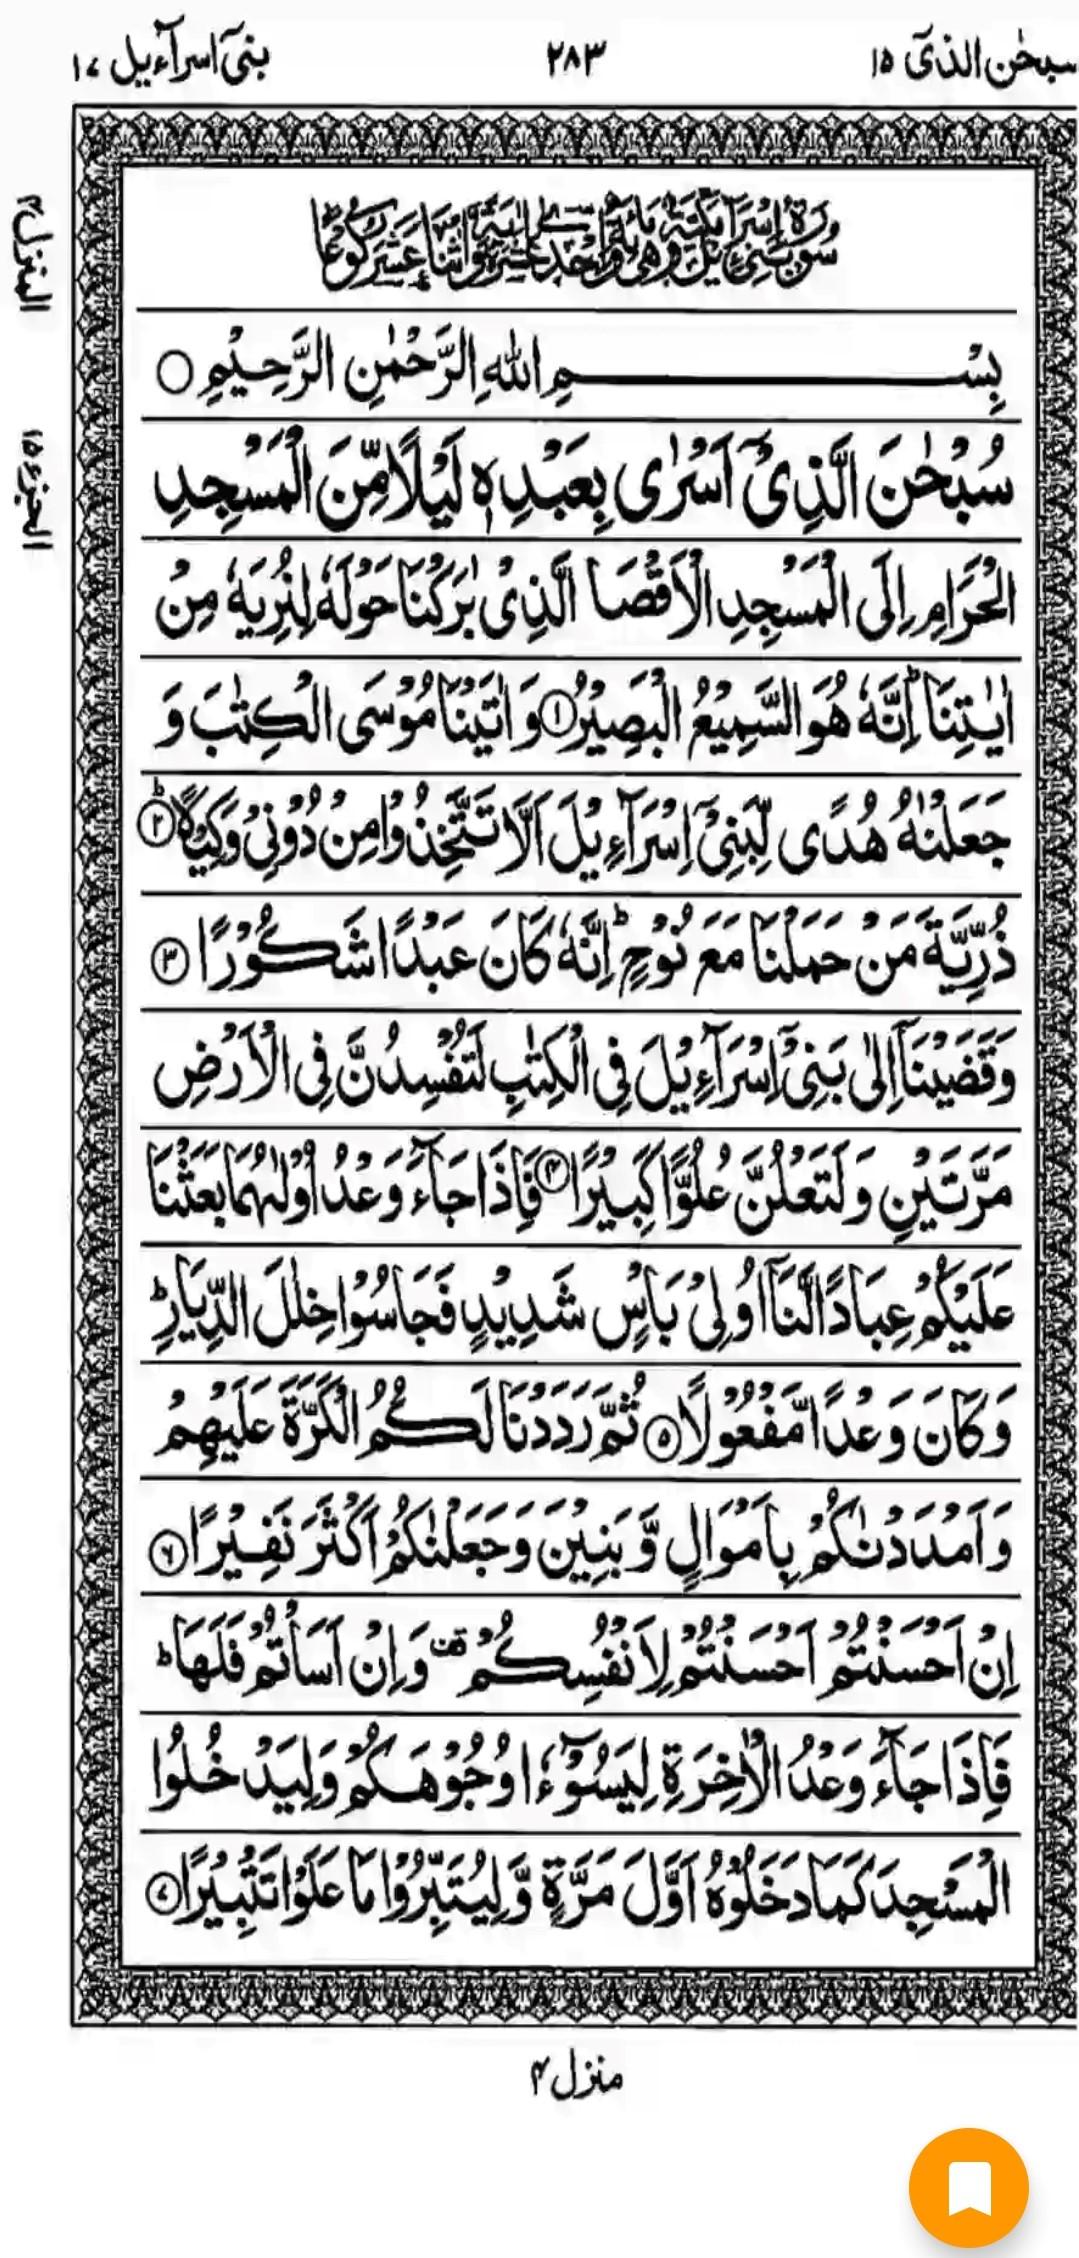 سبحٰن الذیٓ ۱۵
۲۸۳
بنیٓ اسرآءیل ۱۷
المنزل ۴
الجزء ۱۵
سُوْرَةُ بَنِیْٓ اِسْرَآءِیْلَ مَکِّیَّةٌ وَّهِیَ مِائَةٌ وَّاِحْدٰی عَشْرَةَ اٰیَةً وَّاثْنَا عَشَرَ رُکُوْعًا
بِسْمِ اللّٰهِ الرَّحْمٰنِ الرَّحِیْمِ ○
سُبْحٰنَ الَّذِیْۤ اَسْرٰی بِعَبْدِهٖ لَیْلًا مِّنَ الْمَسْجِدِ
الْحَرَامِ اِلَی الْمَسْجِدِ الْاَقْصَا الَّذِیْ بٰرَكْنَا حَوْلَهٗ لِنُرِیَهٗ مِنْ
اٰیٰتِنَا ؕ اِنَّهٗ هُوَ السَّمِیْعُ الْبَصِیْرُ ۱ وَ اٰتَیْنَا مُوْسَی الْكِتٰبَ وَ
جَعَلْنٰهُ هُدًی لِّبَنِیْۤ اِسْرَآءِیْلَ اَلَّا تَتَّخِذُوْا مِنْ دُوْنِیْ وَكِیْلًا ؕ ۲
ذُرِّیَّةَ مَنْ حَمَلْنَا مَعَ نُوْحٍ ؕ اِنَّهٗ كَانَ عَبْدًا شَكُوْرًا ۳
وَقَضَیْنَاۤ اِلٰی بَنِیْۤ اِسْرَآءِیْلَ فِی الْكِتٰبِ لَتُفْسِدُنَّ فِی الْاَرْضِ
مَرَّتَیْنِ وَلَتَعْلُنَّ عُلُوًّا كَبِیْرًا ۴ فَاِذَا جَآءَ وَعْدُ اُوْلٰىهُمَا بَعَثْنَا
عَلَیْكُمْ عِبَادًا لَّنَاۤ اُولِیْ بَاْسٍ شَدِیْدٍ فَجَاسُوْا خِلٰلَ الدِّیَارِ ؕ
وَكَانَ وَعْدًا مَّفْعُوْلًا ۵ ثُمَّ رَدَدْنَا لَكُمُ الْكَرَّةَ عَلَیْهِمْ
وَاَمْدَدْنٰكُمْ بِاَمْوَالٍ وَّبَنِیْنَ وَجَعَلْنٰكُمْ اَكْثَرَ نَفِیْرًا ۶
اِنْ اَحْسَنْتُمْ اَحْسَنْتُمْ لِاَنْفُسِكُمْ قف وَاِنْ اَسَاْتُمْ فَلَهَا ؕ
فَاِذَا جَآءَ وَعْدُ الْاٰخِرَةِ لِیَسُوْٓءٗا وُجُوْهَكُمْ وَلِیَدْخُلُوا
الْمَسْجِدَ كَمَا دَخَلُوْهُ اَوَّلَ مَرَّةٍ وَّلِیُتَبِّرُوْا مَا عَلَوْا تَتْبِیْرًا ۷
منزل ۴